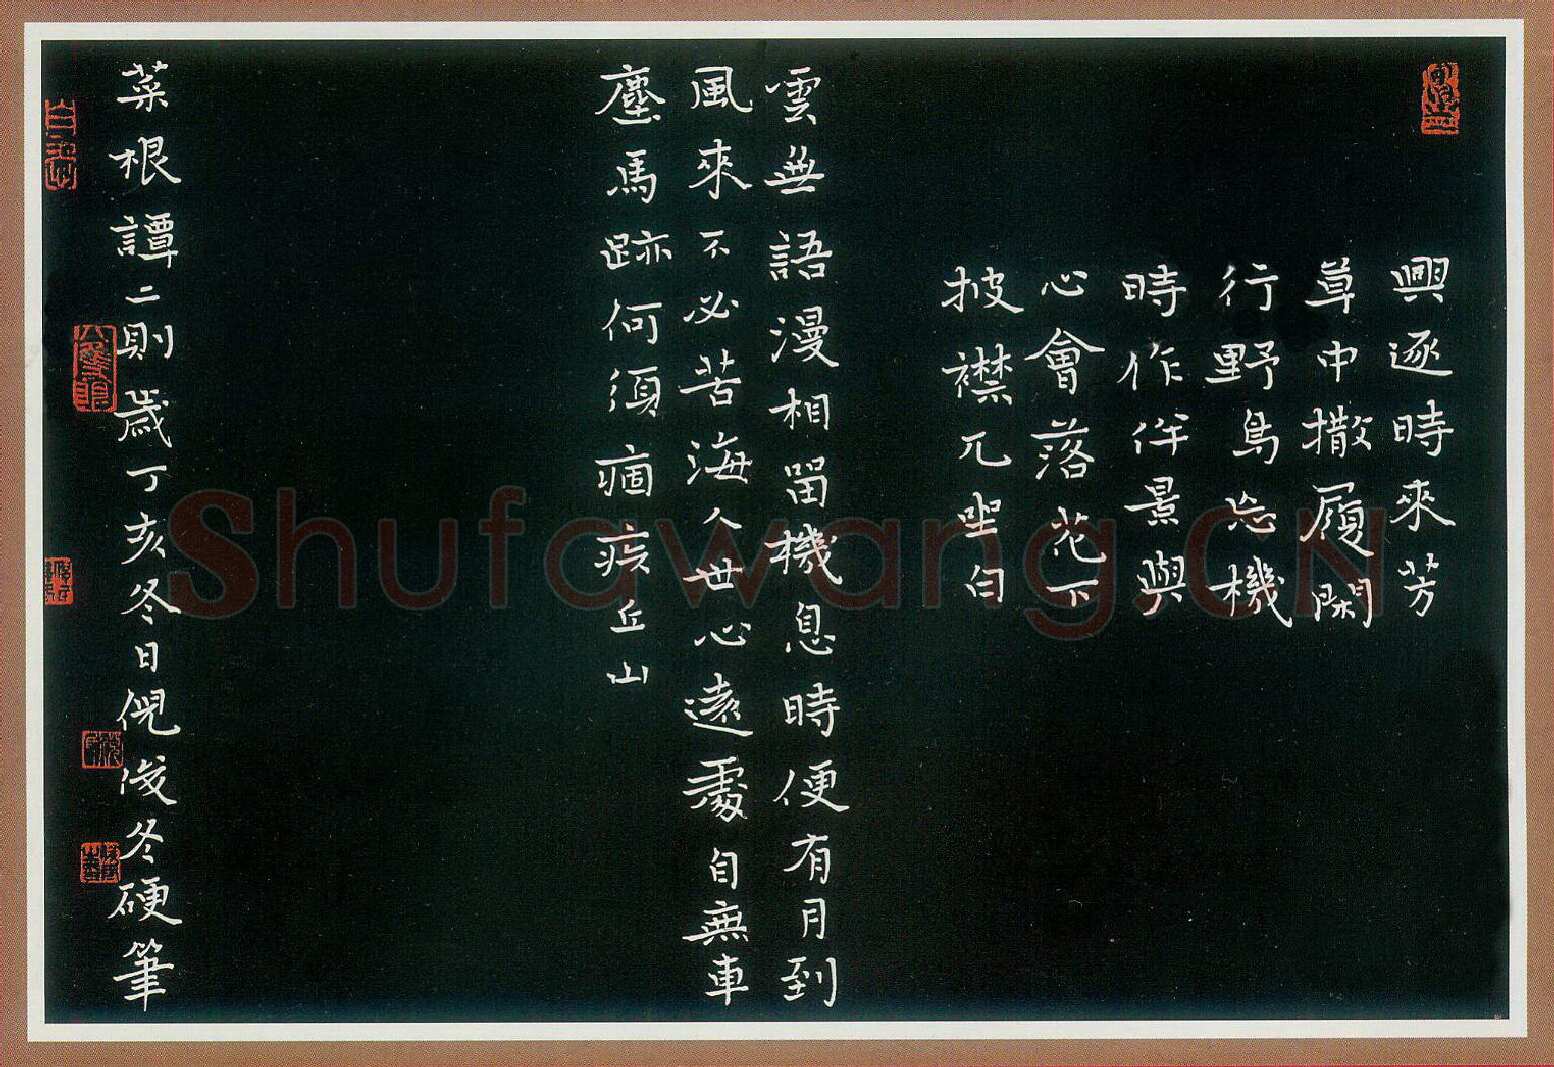 興逐時來芳
草中撒履閑
行野鳥忘機
時作伴景與
心會落花下
披襟兀坐白
雲無語漫相留機息時便有月到
風來不必苦海人世心遠處自無車
塵馬跡何須痼疾丘山
菜根譚二則歲丁亥冬日倪俊冬硬筆
Shufawang.CN